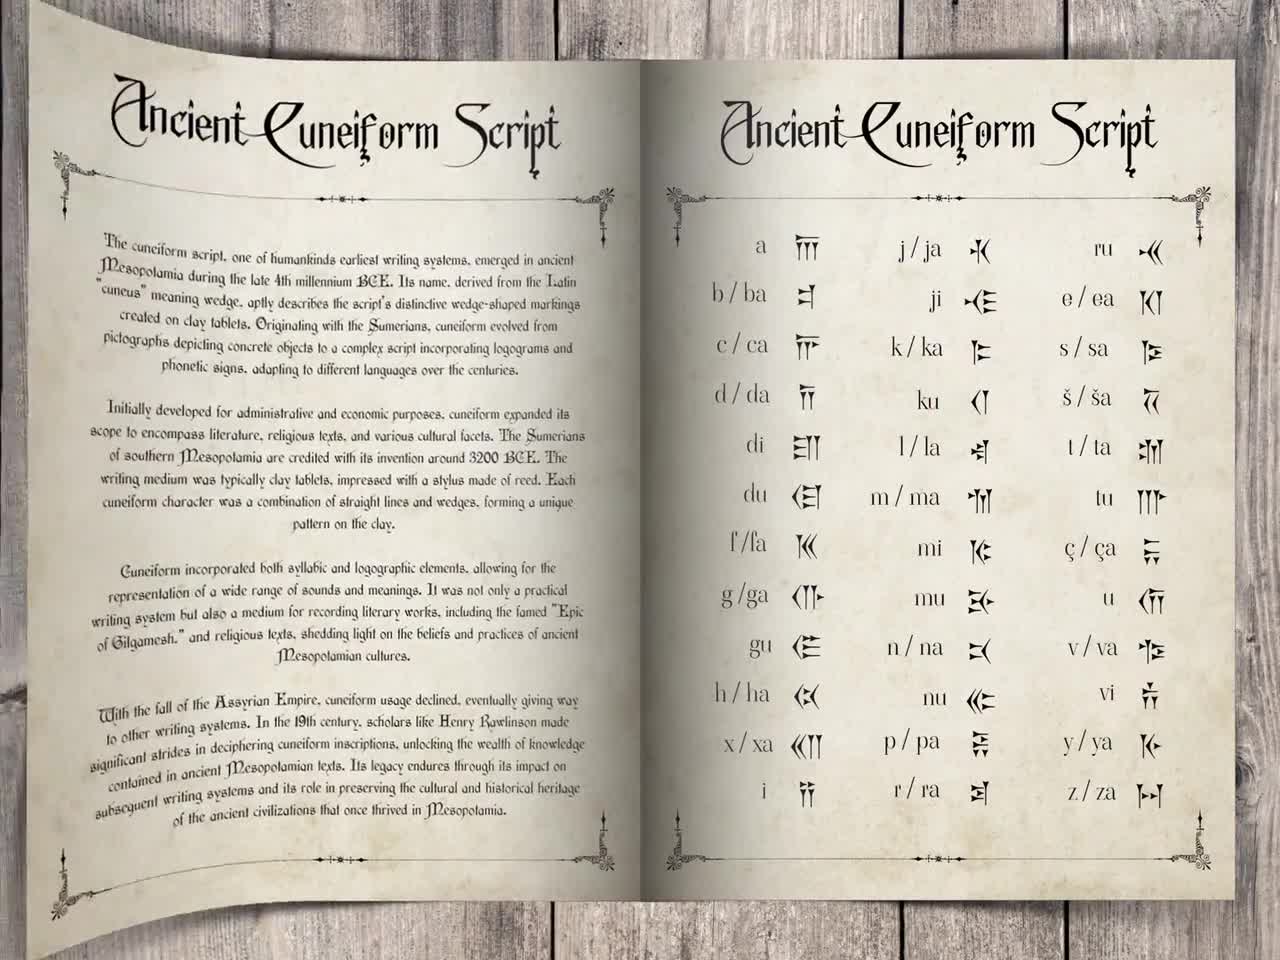 Ancient Cuneiform Script
The cuneiform script, one of humankinds earliest writing systems, emerged in ancient
Mesopotamia during the late 4th millennium BCE. Its name, derived from the Latin
"cuneus" meaning wedge, aptly describes the script's distinctive wedge-shaped markings
created on clay tablets. Originating with the Sumerians, cuneiform evolved from
pictographs depicting concrete objects to a complex script incorporating logograms and
phonetic signs, adapting to different languages over the centuries.
Initially developed for administrative and economic purposes, cuneiform expanded its
scope to encompass literature, religious texts, and various cultural facets. The Sumerians
of southern Mesopotamia are credited with its invention around 3200 BCE. The
writing medium was typically clay tablets, impressed with a stylus made of reed. Each
cuneiform character was a combination of straight lines and wedges, forming a unique
pattern on the clay.
Cuneiform incorporated both syllabic and logographic elements, allowing for the
representation of a wide range of sounds and meanings. It was not only a practical
writing system but also a medium for recording literary works, including the famed "Epic
of Gilgamesh," and religious texts, shedding light on the beliefs and practices of ancient
Mesopotamian cultures.
With the fall of the Assyrian Empire, cuneiform usage declined, eventually giving way
to other writing systems. In the 19th century, scholars like Henry Rawlinson made
significant strides in deciphering cuneiform inscriptions, unlocking the wealth of knowledge
contained in ancient Mesopotamian texts. Its legacy endures through its impact on
subsequent writing systems and its role in preserving the cultural and historical heritage
of the ancient civilizations that once thrived in Mesopotamia.
Ancient Cuneiform Script
a 𐎠
b / ba 𐎲
c / ca 𐎨
d / da 𐎭
di 𐎮
du 𐎯
f /fa 𐎳
g /ga 𐎥
gu 𐎦
h / ha 𐏃
x / xa 𐎧
i 𐎡
j / ja 𐎩
ji 𐎪
k / ka 𐎣
ku 𐎤
l / la 𐎾
m / ma 𐎶
mi 𐎷
mu 𐎸
n / na 𐎴
nu 𐎵
p / pa 𐎱
r / ra 𐎼
ru 𐎽
e / ea
s / sa 𐎿
š / ša 𐏁
t / ta 𐎫
tu 𐎬
ç / ça 𐏂
u 𐎢
v / va 𐎺
vi 𐎻
y / ya 𐎹
z / za 𐏀